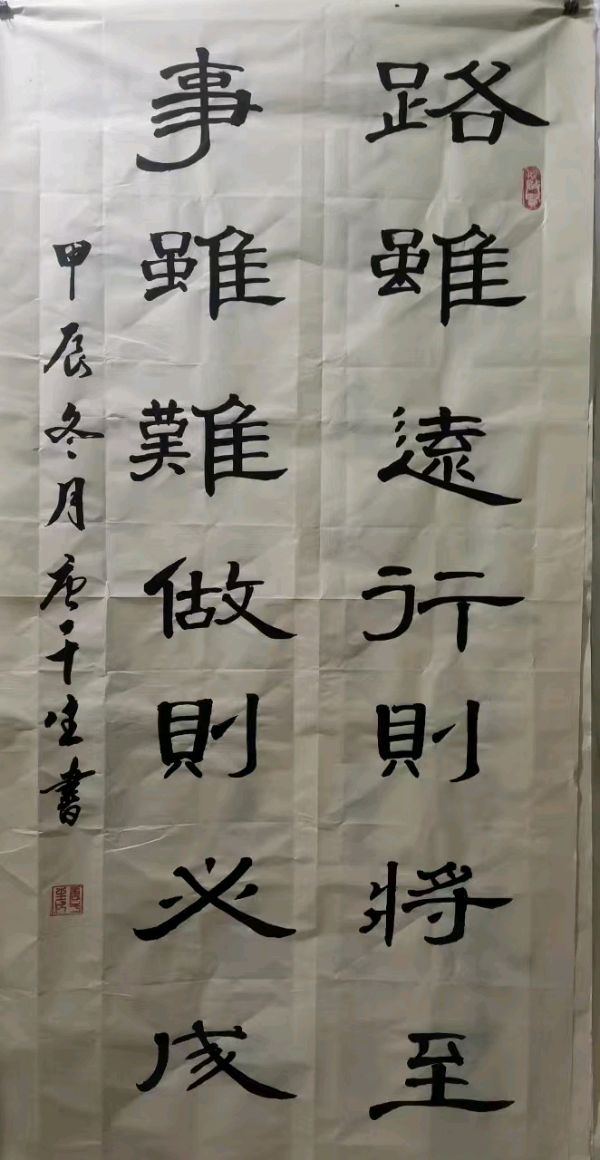 路雖遠行則將至
事雖難做則必成
甲辰冬月唐千生書